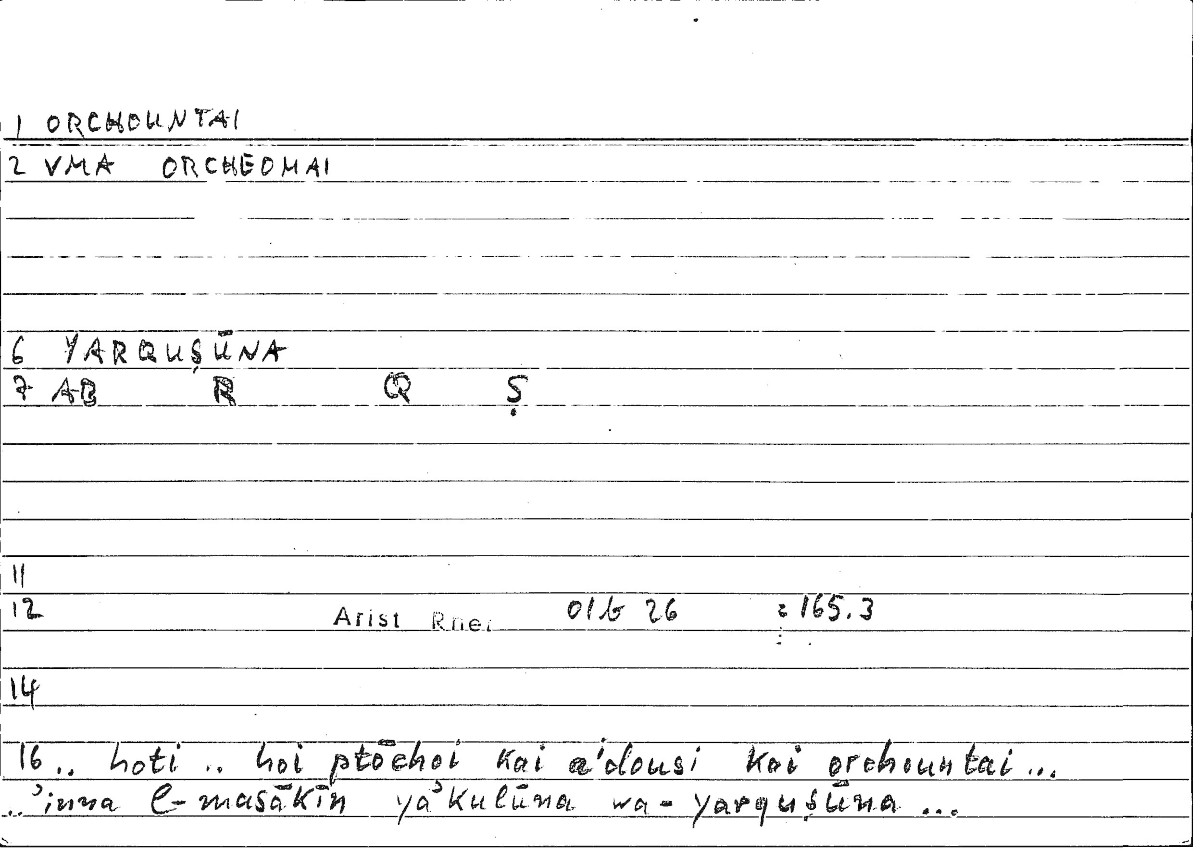 1 ORCHOUNTAI
2 VMA ORCHEOMAI
6 YARQUṢŪNA
7 AB R Q Ṣ
11
12 Arist 01b 26 :165.3
14
16.. hoti .. hoi ptōchoi kai a'dousi kai orchountai...
..ʾinna l-masākīn yaʾkulūna wa-yarquṣūna ...